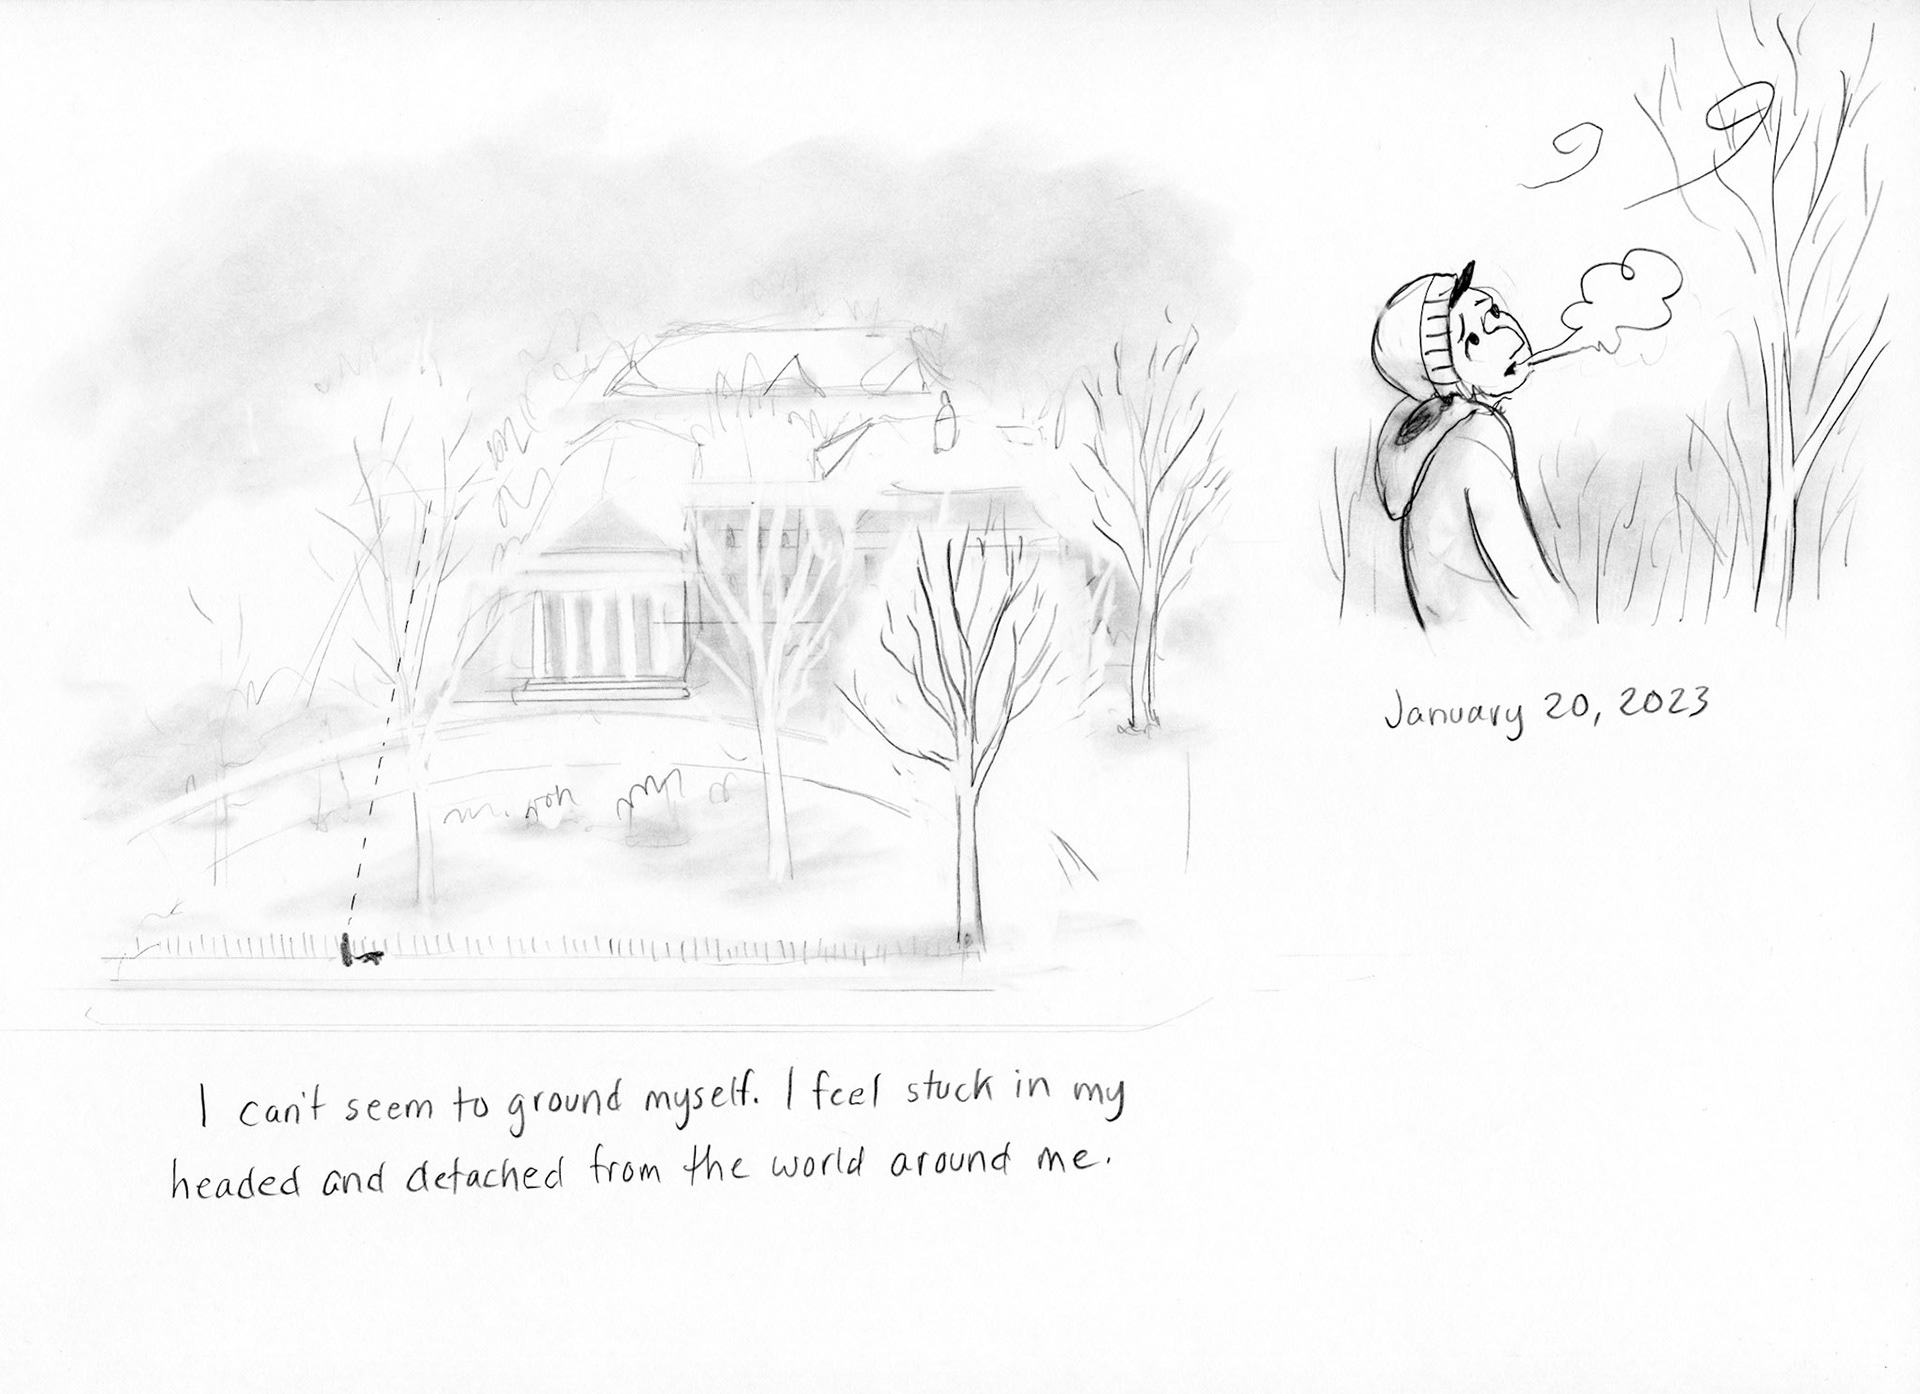 January 20, 2023
I can't seem to ground myself. I feel stuck in my
headed and detached from the world around me.